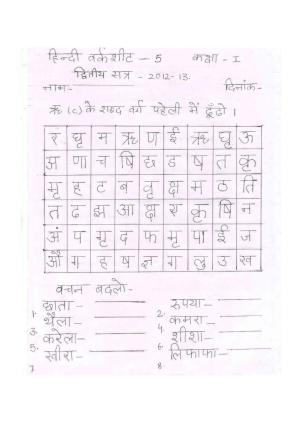 हिन्दी वर्कशीट - 5 कक्षा - I
द्वितीय सत्र - 2012-13.
नाम- दिनांक-
ऋ (ृ) के शब्द वर्ग पहेली में ढूँढो ।
रं घृ म ऋ ण ई ऋ घृ ऊ
अ णा च षि छ ड ष त कृ
मृ ह ट ब वृ क्ष म ठ ति
त ढ झ आ क्ष य कृ षि न
अं प मृ द फ मृ पा ई ज
औ ग ह ष ज्ञ ग लु उ ख
वचन बदलो-
1. छाता- 2. रुपया-
3. थैला- 4. कमरा-
5. करेला- 6. शीशा-
7. खीरा- 8. लिफाफा-